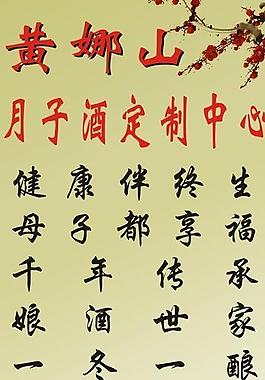 黄娜山
月子酒定制中心
健康伴终生
母子都享福
千年传承
娘酒世家
一冬一酿